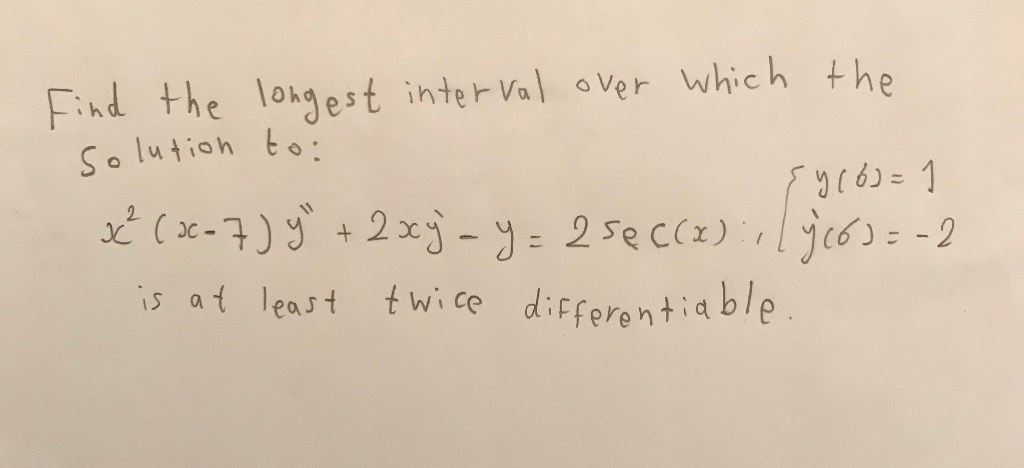 Find the longest interval over which the
Solution to:
x²(x-7)y" + 2xy' - y = 2 sec(x) , { y(6) = 1
y'(6) = -2
is at least twice differentiable.